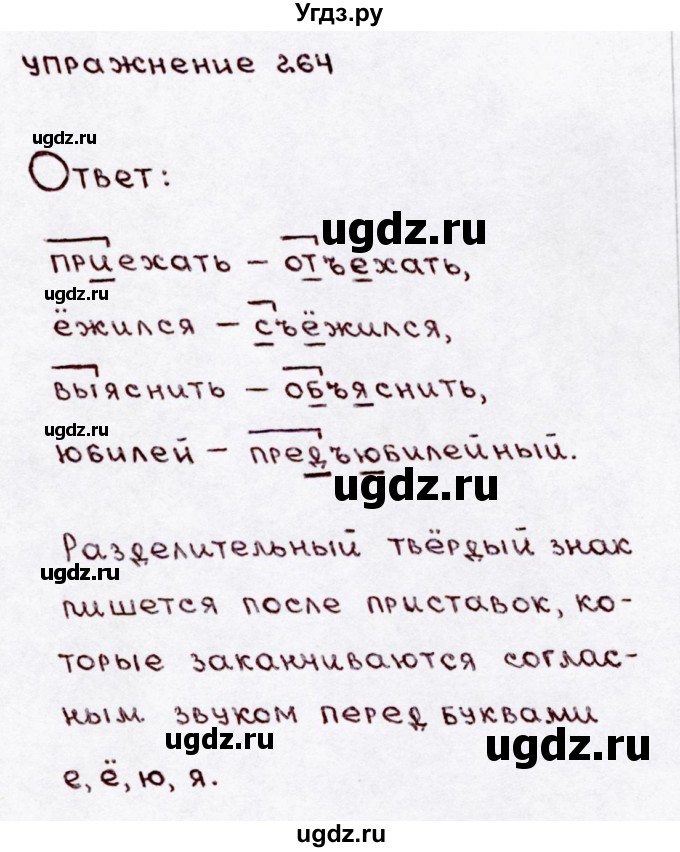 Угдз.ру
упражнение 264
ugdz.ru
Ответ:
ugdz.ru
приехать – отъехать,
ugdz.ru
ёжился – съёжился,
выяснить – объяснить,
ugdz.ru
юбилей – предъюбилейный.
ugdz.ru
Разделительный твёрдый знак
ugdz.ru
пишется после приставок, ко-
торые заканчиваются соглас-
ным звуком перед буквами
ugdz.ru
ugdz.ru
е, ё, ю, я.
ugdz.ru